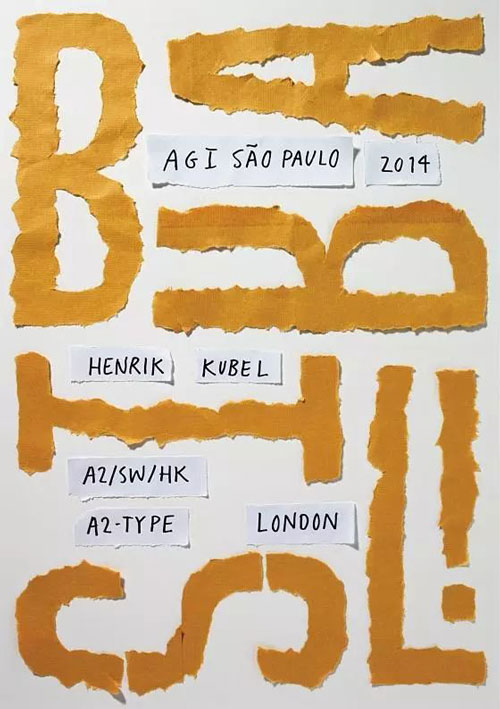 BRASIL!
AGI SÃO PAULO 2014
HENRIK KUBEL
A2/SW/HK
A2-TYPE LONDON